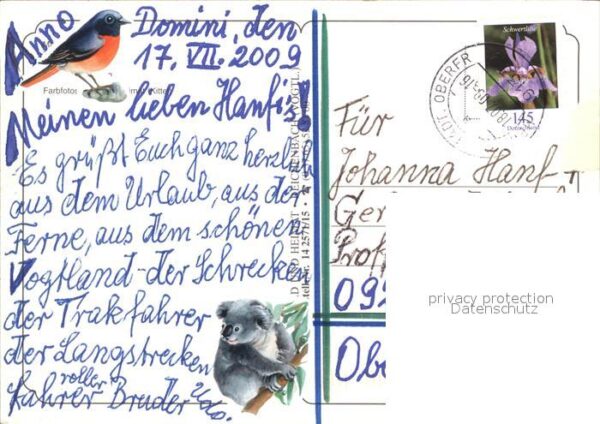 Anno Domini, den
17. VII. 2009
Farbfotos
Meinen lieben Hanfis!
Es grüßt Euch ganz herzlich
aus dem Urlaub, aus der
Ferne, aus dem schönen
Vogtland - der Schrecken
der Trakfahrer
der Langstrecken
roller
fahrer Bruder Udo.
BILD UND HEIMAT REICHENBACH (VOGTL.)
Schwertlilie
145
Deutschland
Für
Johanna Hanf-
Ger
Prof
09
Obe
privacy protection
Datenschutz